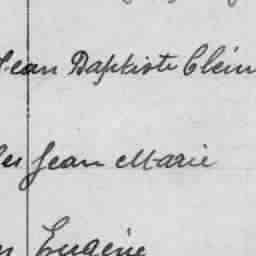 Jean Baptiste Clém
Jean Marie
Eugène